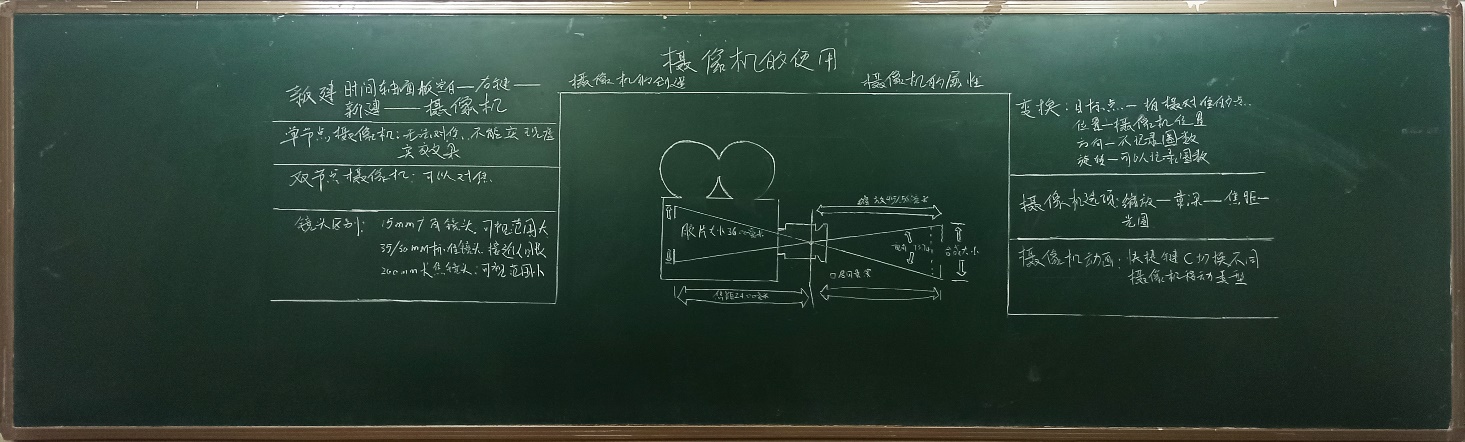 摄像机的使用
摄像机的创建
摄像机的属性
新建 时间轴面板空白——右键——
新建——摄像机
单节点摄像机:无法对焦、不能实现虚
实效果
双节点摄像机:可以对焦
镜头区别: 15mm广角镜头,可视范围大
35/50mm标准镜头,接近人眼
200mm长焦镜头,可视范围小
胶片大小36
焦距24
变换:目标点—拍摄对焦的点
位置—摄像机位置
方向—不记录圈数
旋转—可以记录圈数
摄像机选项:缩放—景深—焦距—
光圈
摄像机动画:快捷键C切换不同
摄像机移动类型